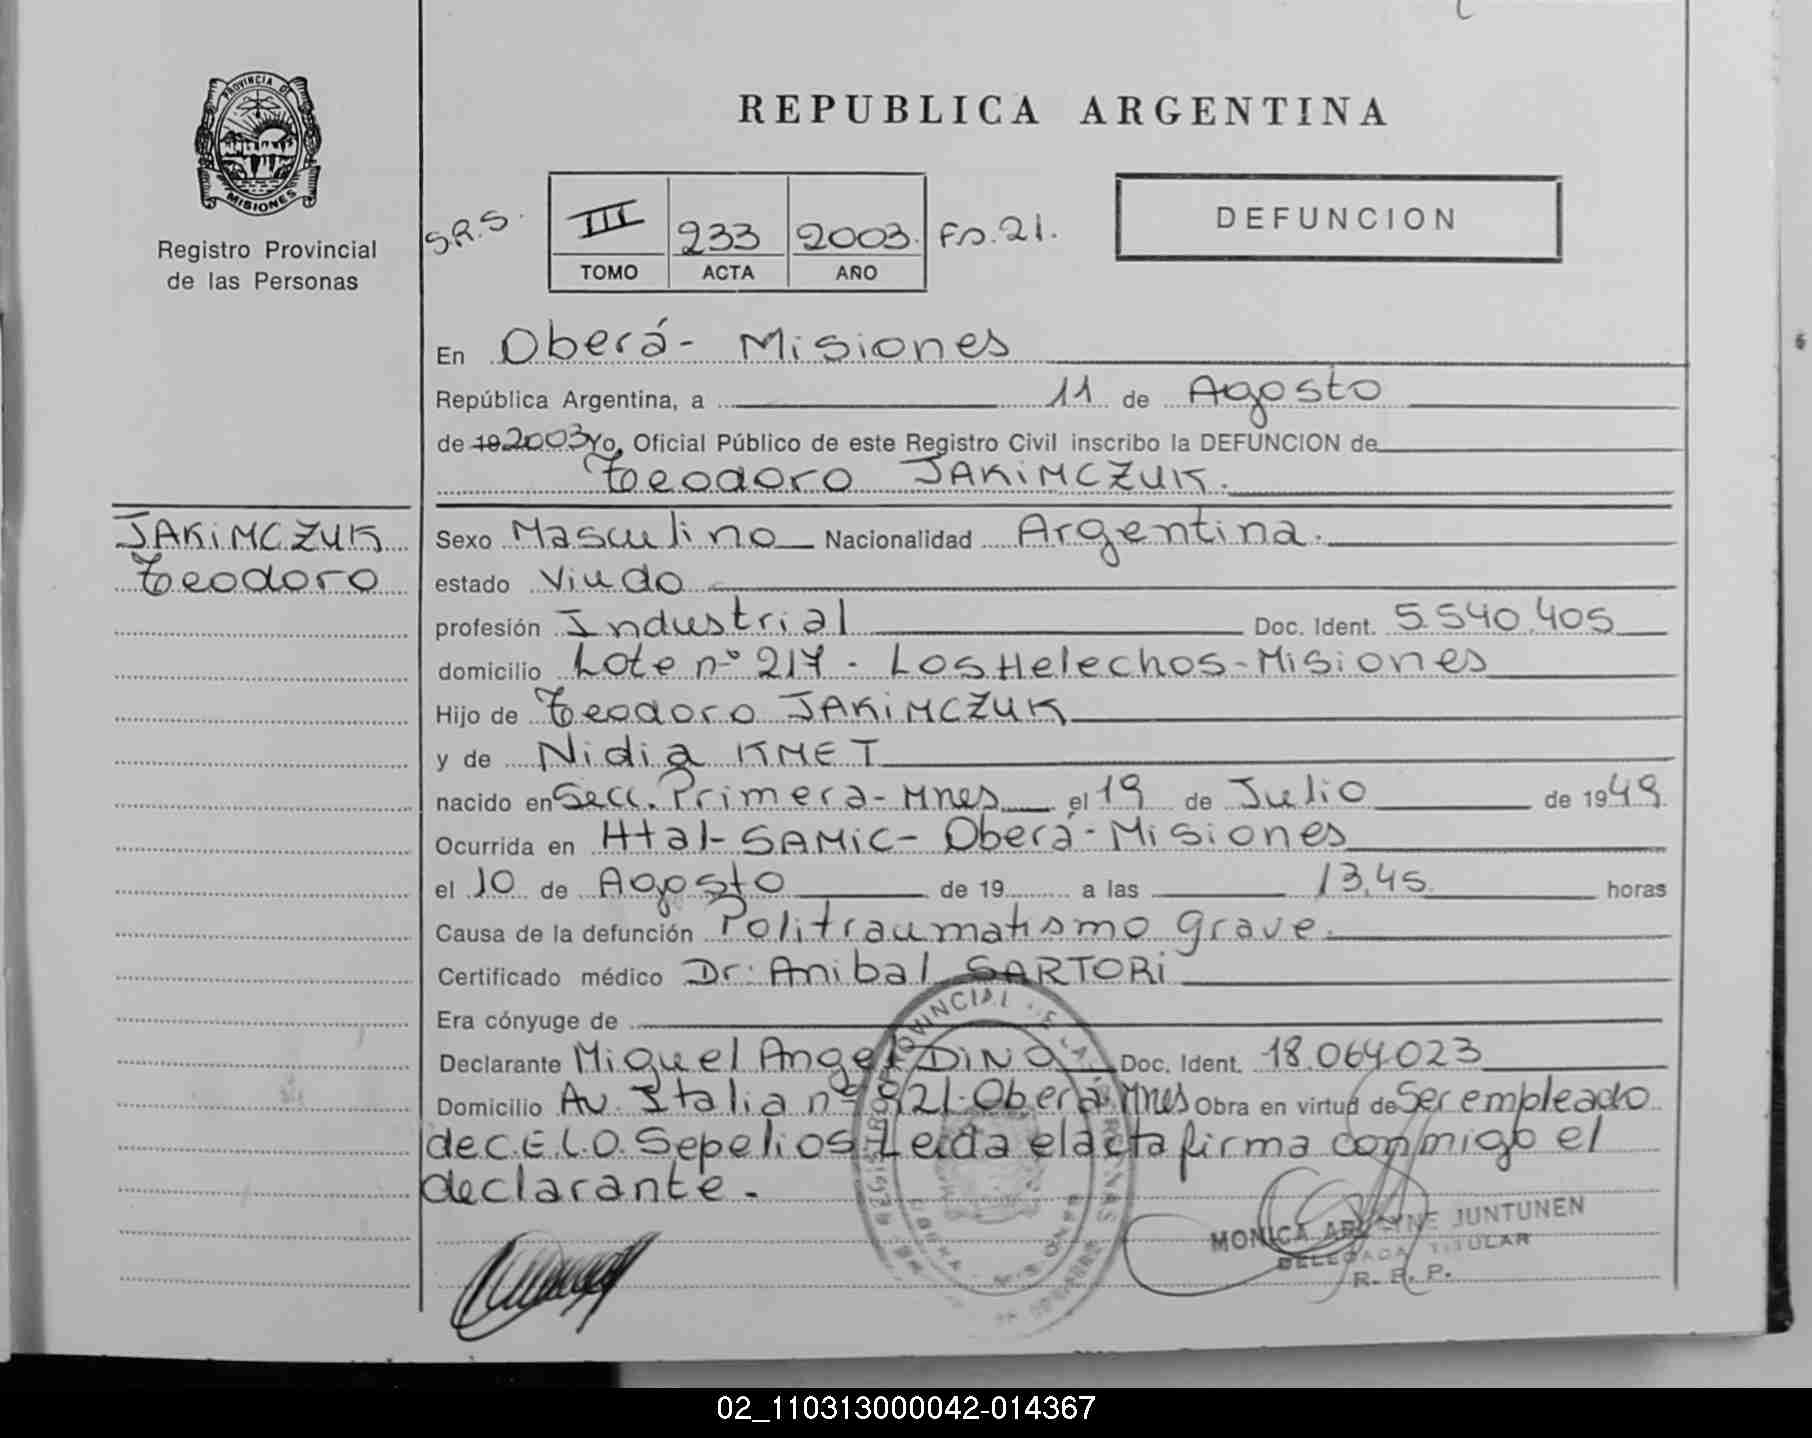 PROVINCIA DE
MISIONES
Registro Provincial
de las Personas
REPUBLICA ARGENTINA
S.R.S.
III 233 2003. Fo. 21.
TOMO ACTA AÑO
DEFUNCION
En Oberá - Misiones
República Argentina, a 11 de Agosto
de 19 2003 Yo, Oficial Público de este Registro Civil inscribo la DEFUNCION de
Teodoro JAKIMCZUK.
JAKIMCZUK
Teodoro
Sexo Masculino Nacionalidad Argentina.
estado Viudo
profesión Industrial Doc. Ident. 5.540.405
domicilio Lote nº 217 - Los Helechos - Misiones
Hijo de Teodoro JAKIMCZUK
y de Nidia KMET
nacido en Secc. Primera - Mnes el 19 de Julio de 1949
Ocurrida en Htal - SAMIC - Oberá - Misiones
el 10 de Agosto de 19 a las 13,45 horas
Causa de la defunción Politraumatismo grave.
Certificado médico Dr: Anibal SARTORI
Era cónyuge de
Declarante Miguel Angel DINO Doc. Ident. 18.064.023
Domicilio Av. Italia nº 821 - Oberá Mnes Obra en virtud de Ser empleado
de C.E.L.O. Sepelios Leida el acta firma conmigo el
declarante.-
MONICA JUNTUNEN
DELEGADA TITULAR
R. P. P.
02_110313000042-014367